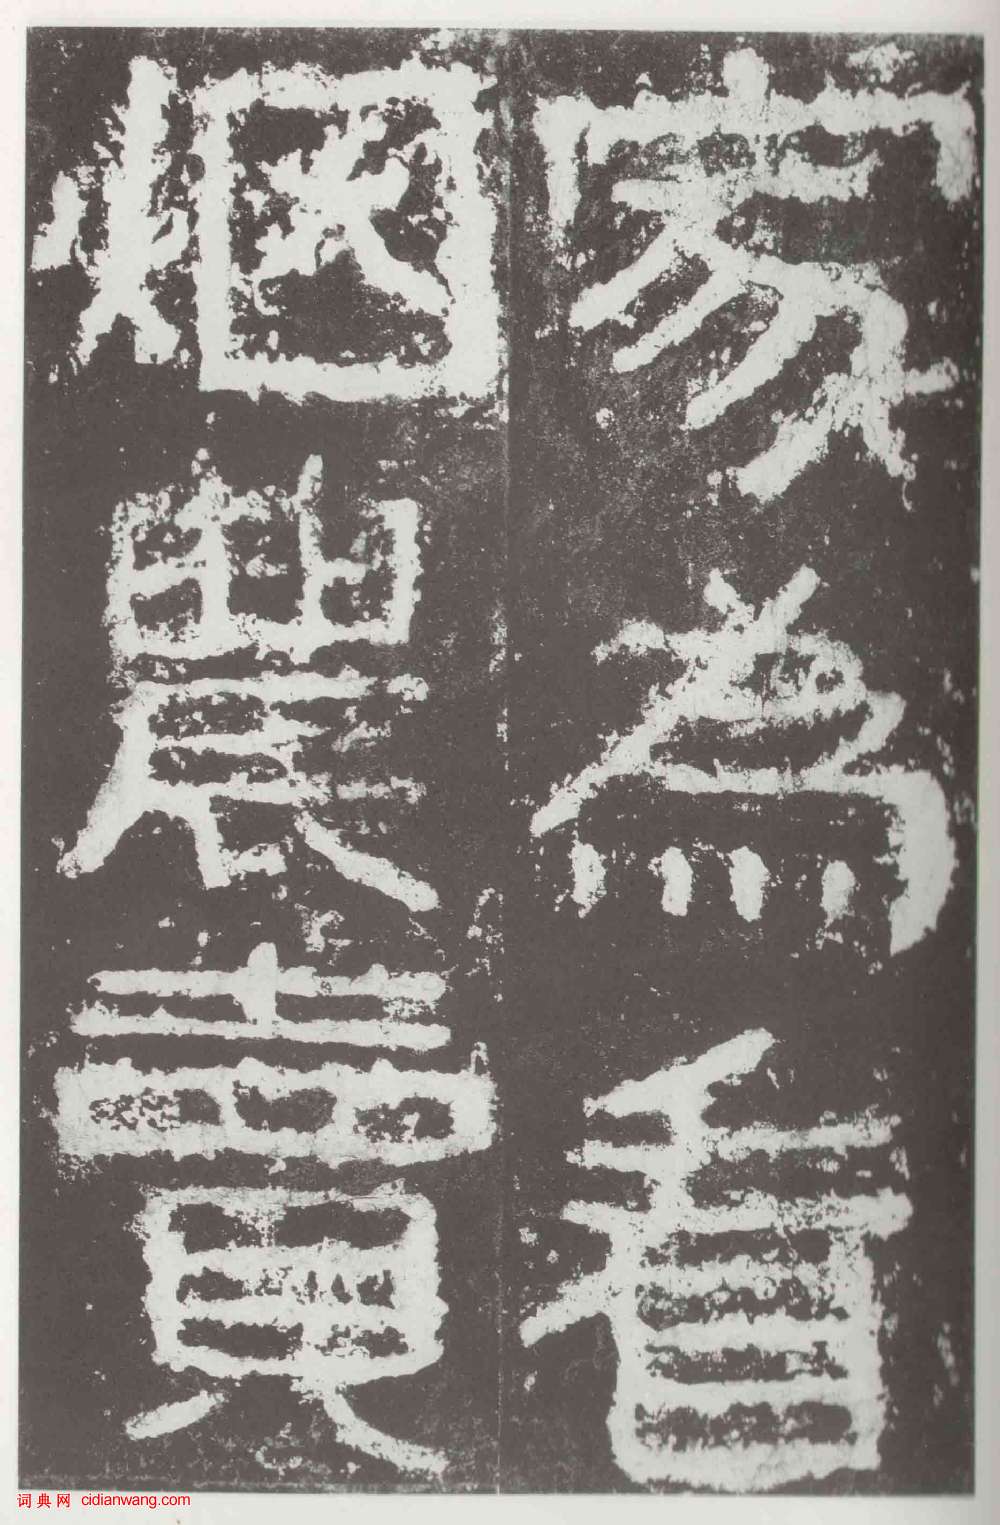 家為看
烟農賣
词典网 cidianwang.com